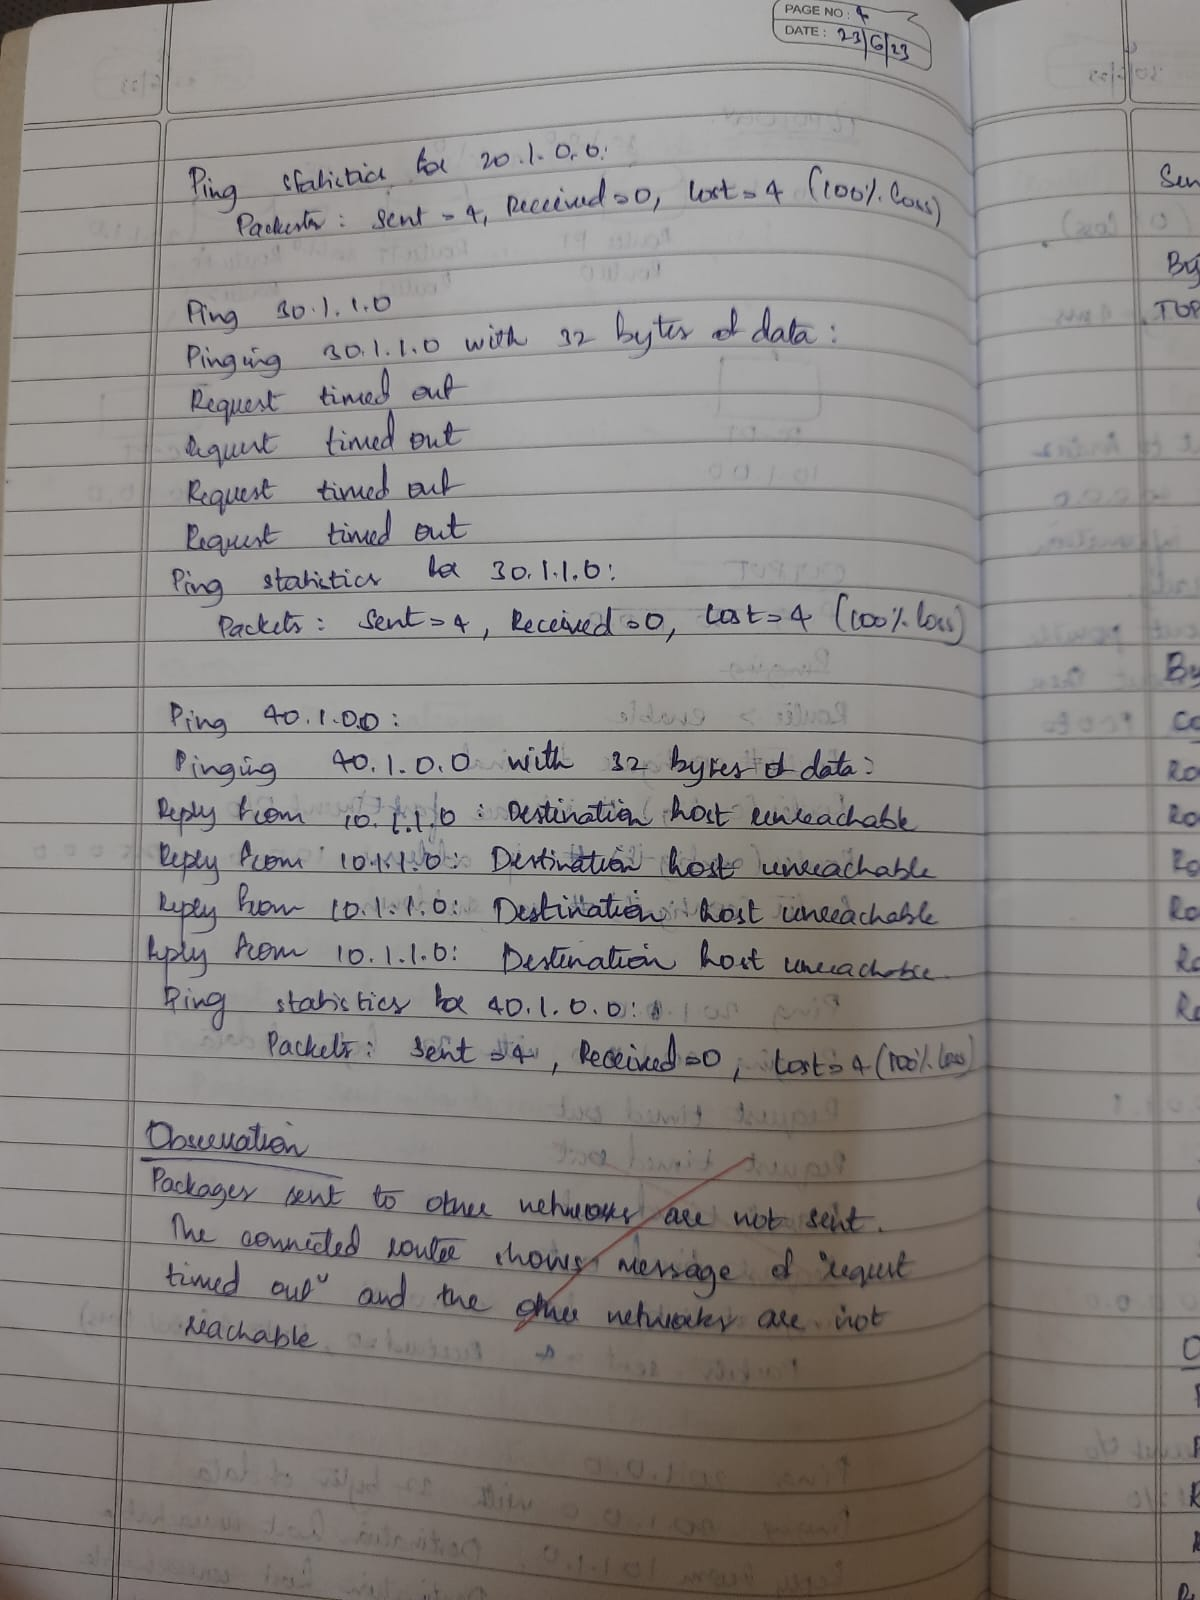 PAGE NO: 4
DATE: 23/6/23
Ping statistics for 20.1.0.0:
Packets: Sent = 4, Received = 0, Lost = 4 (100% loss)
Ping 30.1.1.0
Pinging 30.1.1.0 with 32 bytes of data:
Request timed out
Request timed out
Request timed out
Request timed out
Ping statistics for 30.1.1.0:
Packets: Sent = 4, Received = 0, Lost = 4 (100% loss)
Ping 40.1.0.0:
Pinging 40.1.0.0 with 32 bytes of data:
Reply from 10.1.1.0: Destination host unreachable
Reply from 10.1.1.0: Destination host unreachable
Reply from 10.1.1.0: Destination host unreachable
Reply from 10.1.1.0: Destination host unreachable.
Ping statistics for 40.1.0.0:
Packets: Sent = 4, Received = 0, Lost = 4 (100% loss)
Observation
Packages sent to other networks are not sent.
The connected router shows message of "request
timed out" and the other networks are not
reachable.